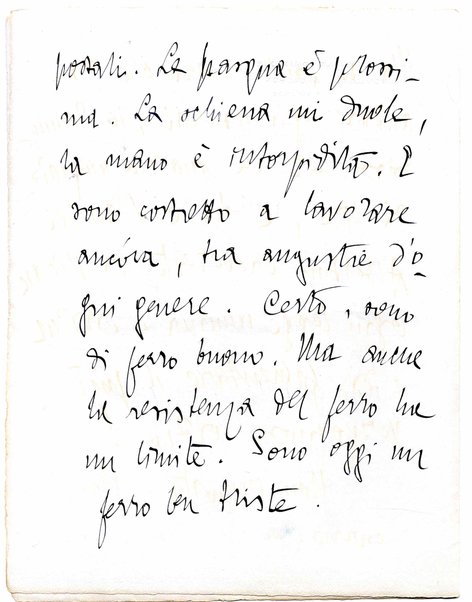 postali. La pasqua è prossi-
ma. La schiena mi duole,
la mano è intorpidita. E
sono costretto a lavorare
ancóra, tra angustie d'o-
gni genere. Certo, sono
di ferro buono. Ma anche
la resistenza del ferro ha
un limite. Sono oggi un
ferro ben triste.